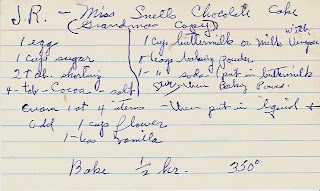 J.R. - Miss Snells Chocolate Cake
Grandmas
1 egg
1 cup sugar
2 tab. shorting
4 - tab - Cocoa - salt
1 cup buttermilk or milk with
1 teas baking powder
1 - " soda / put in buttermilk
then Baking Powd.
Cream 1st 4 items - then put in liquid +
add 1 cup flower
1 - teas vanilla
Bake 1/2 hr. 350°